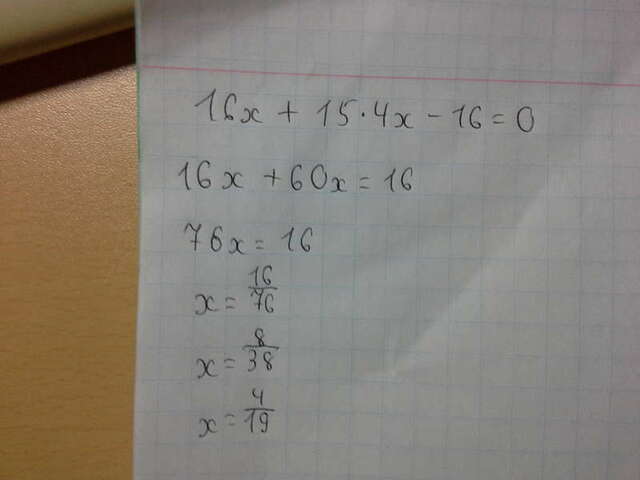 16x + 15·4x - 16 = 0
16x + 60x = 16
76x = 16
x = 16/76
x = 8/38
x = 4/19